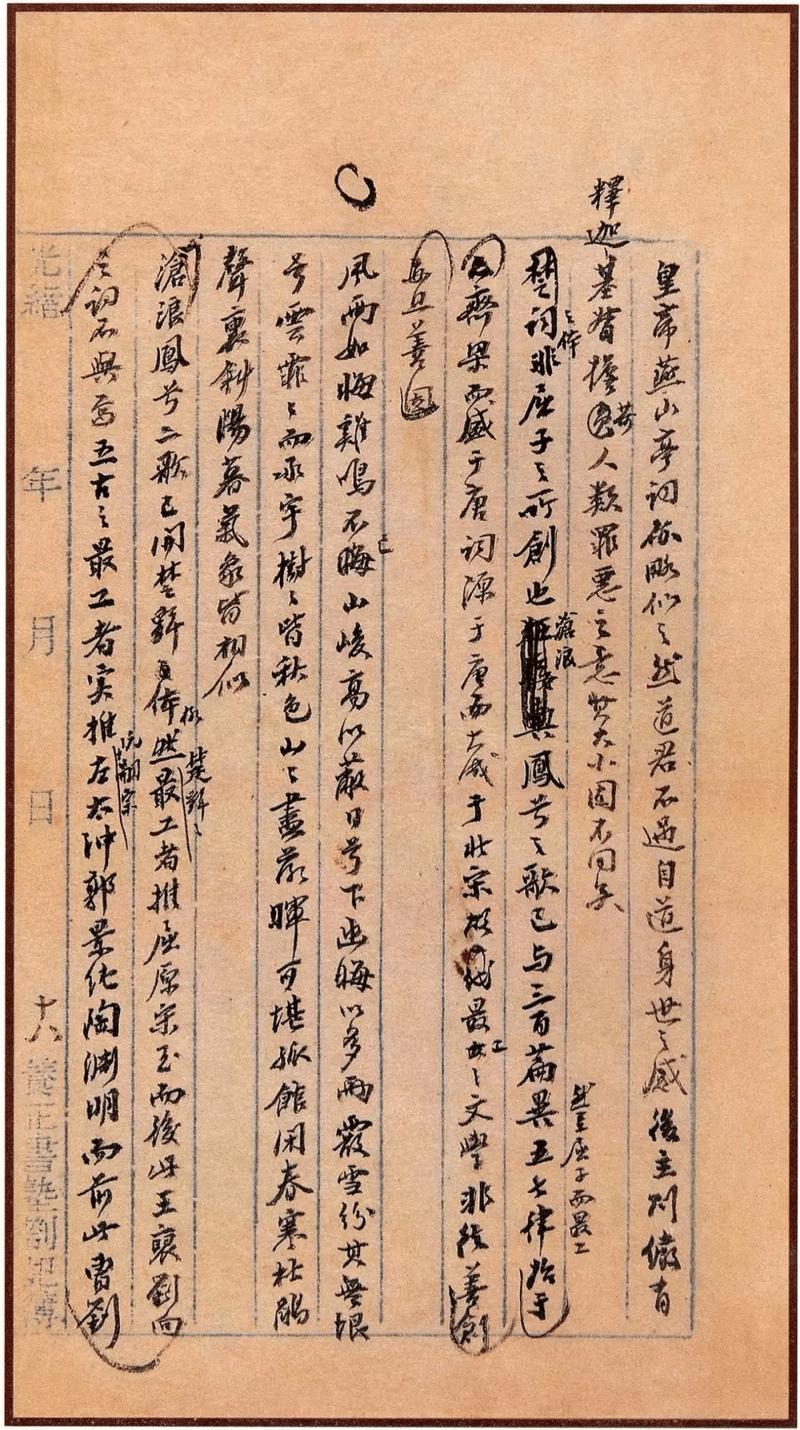 皇帝燕山亭詞亦略似之然道君不過自道身世之感後主則儼有
釋迦基督擔荷人類罪惡之意其大小固不同矣
楚詞之体非屈子之所創也滄浪鳳兮之歌已与三百篇異然至屈子而最工五七律始于
齊梁而盛于唐詞源于唐而大成于北宋故最工之文學非徒善創
亦且善因
風雨如晦雞鳴不已山峻高以蔽日兮下幽晦以多雨霰雪紛其無垠
兮雲霏〻而承宇樹〻皆秋色山〻盡落暉可堪孤館閉春寒杜鵑
聲裏斜陽暮氣象皆相似
滄浪鳳兮二歌已開楚辭体格然楚辭之最工者推屈原宋玉而後此王襃劉向
之詞不與焉五古之最工者实推阮嗣宗左太冲郭景純陶淵明而前此曹劉
光緒 年 月 日 十八 養正書塾劄記簿